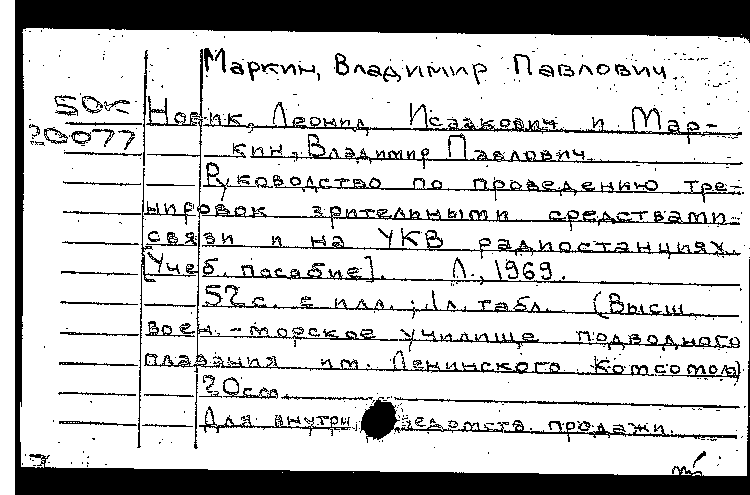 Маркин, Владимир Павлович
50к Новик, Леонид Исаакович и Мар-
20077 кин, Владимир Павлович.
Руководство по проведению тре-
нировок зрительными средствами
связи и на УКВ радиостанциях.
[Учеб. пособие]. Л., 1969.
52 с. с илл.; 1 л. табл. (Высш.
воен.-морское училище подводного
плавания им. Ленинского Комсомола)
20 см.
Для внутри ведомств. продажи.